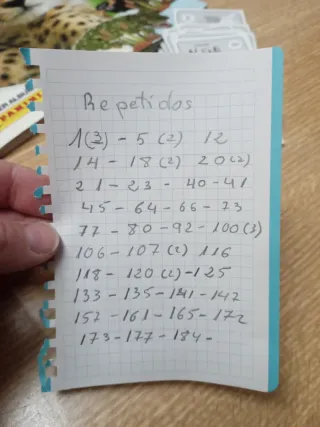 Repetidos
1(3) - 5 (2) 12
14 - 18 (2) 20 (2)
21 - 23 - 40 - 41
45 - 64 - 66 - 73
77 - 80 - 92 - 100 (3)
106 - 107 (2) 116
118 - 120 (2) - 125
133 - 135 - 141 - 142
152 - 161 - 165 - 172
173 - 177 - 184 -
PANINI